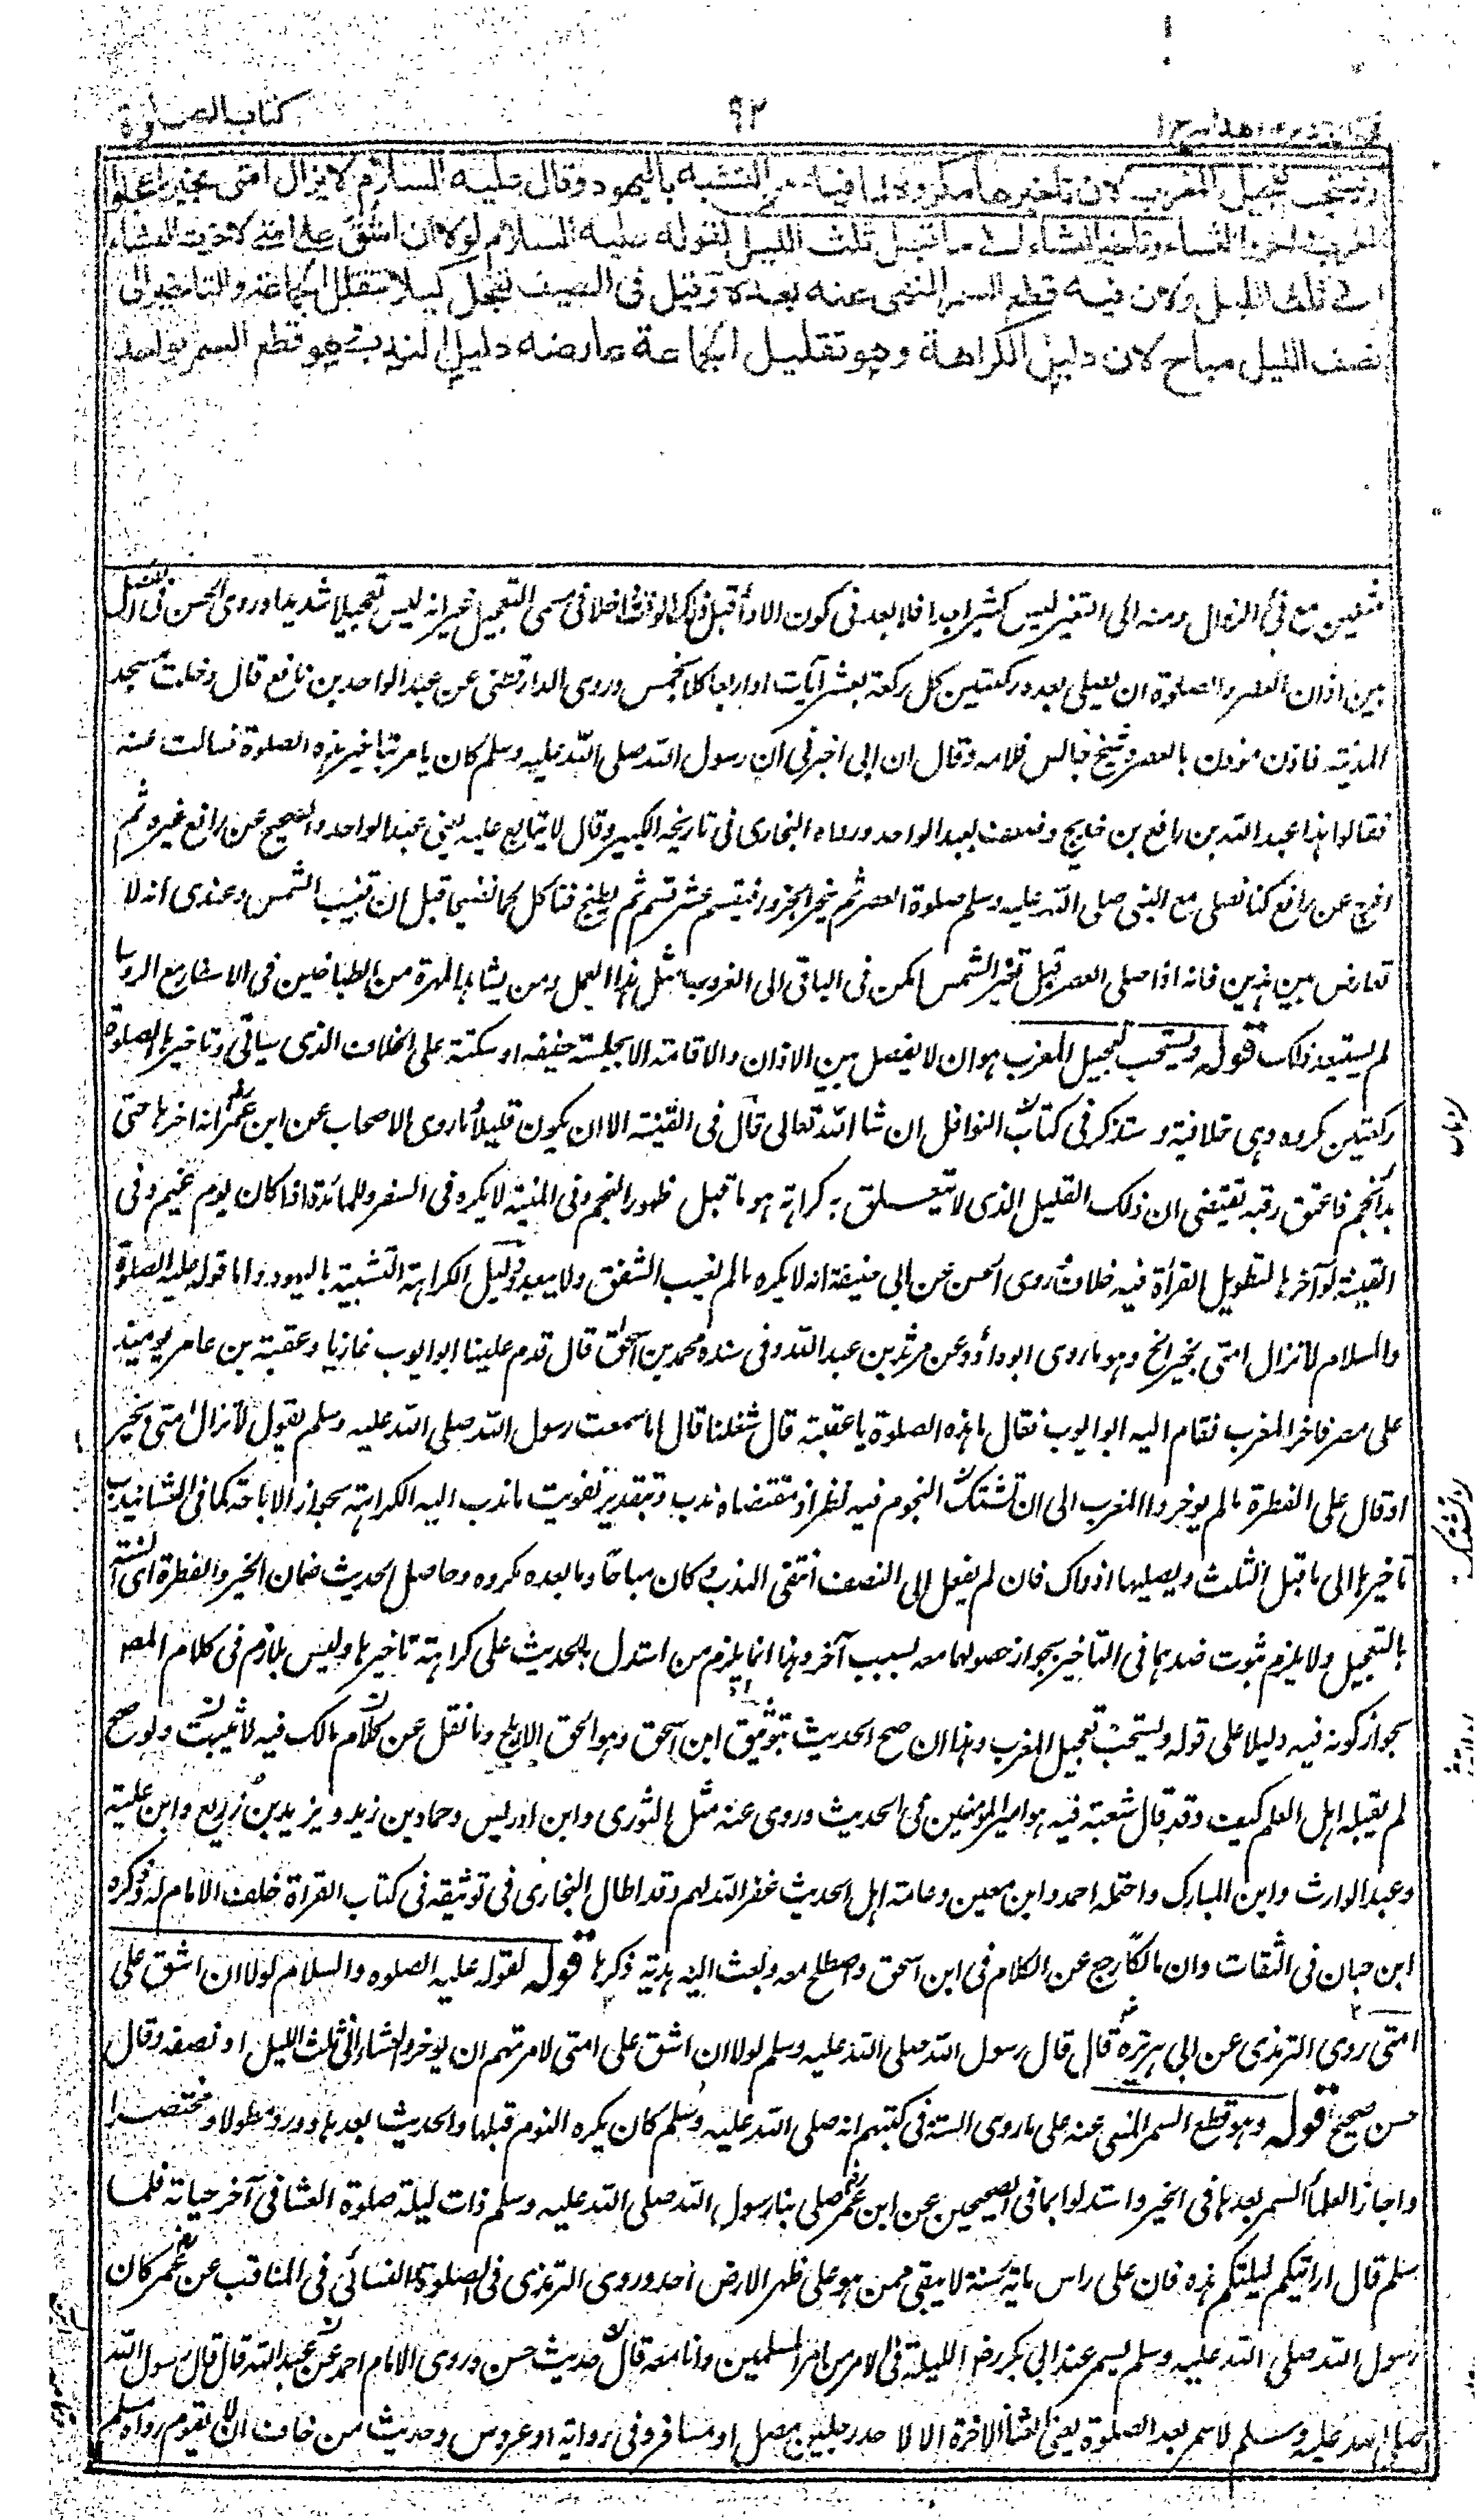 كتاب الصلوة
٩٢
فتح القدير مع الهداية ج ١
ويستحب تعجيل المغرب لان تاخيرها مكروه لما فيه من التشبه باليهود وقال عليه السلام لا يزال امتى بخير ما عجلوا
المغرب واخروا العشاء وتاخير العشاء الى ما قبل ثلث الليل لقوله عليه السلام لولا ان اشق على امتى لاخرت العشاء
الى ثلث الليل ولان فيه قطع السمر المنهى عنه بعده وقيل فى الصيف تعجل كيلا تتقلل الجماعة والتاخير الى
نصف الليل مباح لان دليل الكراهة وهو تقليل الجماعة عارضه دليل الندب وهو قطع السمر بواحد
مثلين مع فئ الزوال ومنه الى التغير ليس كثيرا جدا فلا يبعد فى كون الاداء قبل ذلك الوقت داخلا فى مسمى التعجيل غير انه ليس تعجيلا شديدا وروى الحسن فى الفصل
بين اذان العصر والصلوة ان يصلى بعده ركعتين كل ركعة بعشر آيات او اربعا كلا بخمس وروى الدارقطنى عن عبد الواحد بن نافع قال دخلت مسجد
المدينة فاذن موذن بالعصر وشيخ جالس فلامه وقال ان ابى اخبرنى ان رسول الله صلى الله عليه وسلم كان يامر بتاخير هذه الصلوة فسالت عنه
فقالوا هذا عبد الله بن رافع بن خديج وضعف بعبد الواحد ورواه البخارى فى تاريخه الكبير وقال لا يتابع عليه يعنى عبد الواحد والصحيح عن رافع غيره ثم
اخرج عن رافع كنا نصلى مع النبى صلى الله عليه وسلم صلوة العصر ثم ننحر الجزور فيقسم عشر قسم ثم يطبخ فناكل لحما نضيجا قبل ان تغيب الشمس وعندى انه لا
تعارض بين هذين فانه اذا صلى العصر قبل تغير الشمس امكن فى الباقى الى الغروب مثل هذا العمل ومن يشاهد المهرة من الطباخين فى الاسفار مع الروسا
لم يستبعد ذلك قوله ويستحب تعجيل المغرب هو ان لا يفصل بين الاذان والاقامة الا بجلسة خفيفة او سكتة على الخلاف الذى سياتى وتاخيرها لصلوة
ركعتين مكروه وهى خلافية وستذكر فى كتاب النوافل ان شا الله تعالى قال فى القنية الا ان يكون قليلا وما روى الاصحاب عن ابن عمر انه اخرها حتى
بدا نجم فاعتق رقبة يقتضى ان ذلك القليل الذى لا تتعلق به كراهة هو ما قبل ظهور النجم وفى المنية لا يكره فى السفر وللمائدة اذا كان يوم غيم وفى
القنية لو آخرها لتطويل القراة فيه خلاف روى الحسن عن ابى حنيفة انه لا يكره ما لم يغيب الشفق ولا يبعد ودليل الكراهة التشبيه باليهود واما قوله عليه الصلوة
والسلام لا تزال امتى بخير الخ وهو ما روى ابو داؤد عن مرثد بن عبد الله وفى سنده محمد بن اسحق قال قدم علينا ابو ايوب غازيا وعقبة بن عامر يومئذ
على مصر فاخر المغرب فقام اليه ابو ايوب فقال ما هذه الصلوة يا عقبة قال شغلنا قال اما سمعت رسول الله صلى الله عليه وسلم يقول لا تزال امتى بخير
او قال على الفطرة ما لم يوخروا المغرب الى ان تشتبك النجوم فيه نظر اذ مقتضاه ندب وبتقدير تفويت ما ندب اليه الكراهة بجواز الاباحة كما فى العشا ندب
تاخيرها الى ما قبل الثلث ويصليها اذ ذاك فان لم يفعل الى النصف انتفى الندب وكان مباحا وما بعده مكروه وحاصل الحديث ضمان الخير والفطرة اى السنة
بالتعجيل ولا يلزم ثبوت ضدهما فى التاخير بجواز حصولهما معه لسبب آخر وهذا انما يلزم من استدل بالحديث على كراهة تاخيرها وليس بلازم فى كلام المصـ
بجواز كونه فيه دليلا على قوله ويستحب تعجيل المغرب وهذا ان صح الحديث بتوثيق ابن اسحق وهو الحق الابلج وما نقل عن كلام مالك فيه لا يثبت ولو صح
لم يقبله اهل العلم كيف وقد قال شعبة فيه هو امير المؤمنين فى الحديث وروى عنه مثل الثورى وابن ادريس وحماد بن زيد ويزيد بن زريع وابن علية
وعبد الوارث وابن المبارك واحتمله احمد وابن معين وعامة اهل الحديث غفر الله لهم وقد اطال البخارى فى توثيقه فى كتاب القراة خلف الامام له وذكره
ابن حبان فى الثقات وان مالكا رجع عن الكلام فى ابن اسحق واصطلح معه وبعث اليه هدية ذكرها قوله لقوله عليه الصلوه والسلام لولا ان اشق على
امتى روى الترمذى عن ابى هريرة قال قال رسول الله صلى الله عليه وسلم لولا ان اشق على امتى لامرتهم ان يوخروا العشاء الى ثلث الليل او نصفه وقال
حسن صحيح قوله وهو قطع السمر المنهى عنه على ما روى الستة فى كتبهم انه صلى الله عليه وسلم كان يكره النوم قبلها والحديث بعدها وورد مطولا ومختصرا
واجاز العلماء السمر بعدها فى الخير واستدلوا بما فى الصحيحين عن ابن عمر صلى بنا رسول الله صلى الله عليه وسلم ذات ليلة صلوة العشا فى آخر حياته فلما
سلم قال ارايتكم ليلتكم هذه فان على راس ماية سنة لا يبقى ممن هو على ظهر الارض احد وروى الترمذى فى الصلوة والنسائى فى المناقب عن عمر كان
رسول الله صلى الله عليه وسلم يسمر عند ابى بكر رض الليلة فى الامر من امر المسلمين وانا معه قال حديث حسن وروى الامام احمد عن عبد الله قال قال رسول الله
صلى الله عليه وسلم لا سمر بعد الصلوة يعنى العشا الاخرة الا لاحد رجلين مصل او مسافر وفى رواية او عروس وحديث من خاف ان لا يقوم رواه مسلم